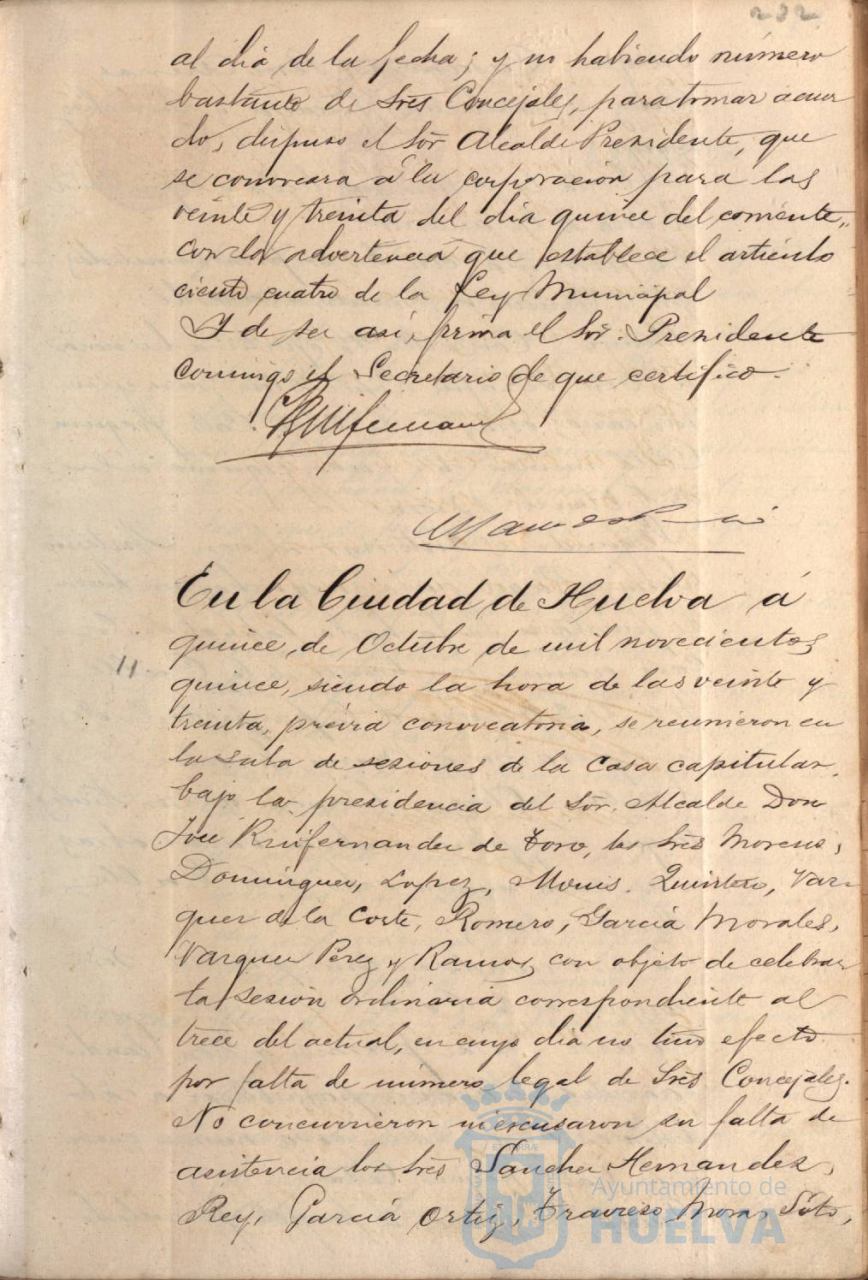 232
al día de la fecha; y no habiendo número
bastante de Sres Concejales, para tomar acuer
do, dispuso el Sor Alcalde Presidente, que
se convocara á la corporación para las
veinte y treinta del día quince del corriente,
con la advertencia que establece el artículo
ciento cuatro de la Ley Municipal
Y de ser así, firma el Sor. Presidente
conmigo el Secretario de que certifico.
En la Ciudad de Huelva á
quince, de Octubre de mil novecientos
11.
quince, siendo la hora de las veinte y
treinta, prévia convocatoria, se reunieron en
la sala de sesiones de la Casa capitular,
bajo la presidencia del Sor. Alcalde Don
José Ruifernandez de Toro, los Sres Moreno,
Dominguez, Lopez, Monis, Quintero, Vaz
quez de la Corte, Romero, García Morales,
Vazquez Perez y Ramos, con objeto de celebrar
la sesión ordinaria correspondiente al
trece del actual, en cuyo día no tuvo efecto
por falta de número legal de Sres Concejales.
No concurrieron ni escusaron su falta de
asistencia los Sres Sánchez Hernandez,
Rey, García Ortiz, Travieso, Mora, Soto,
Ayuntamiento de
HUELVA